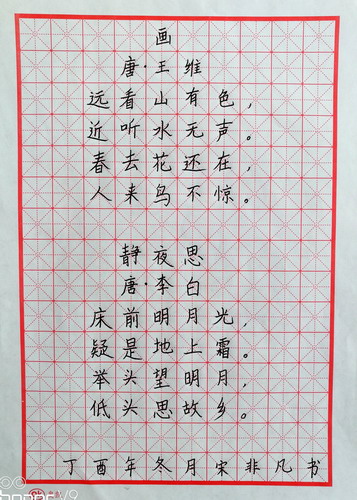 画
唐·王维
远看山有色，
近听水无声。
春去花还在，
人来鸟不惊。
静夜思
唐·李白
床前明月光，
疑是地上霜。
举头望明月，
低头思故乡。
丁酉年冬月宋非凡书